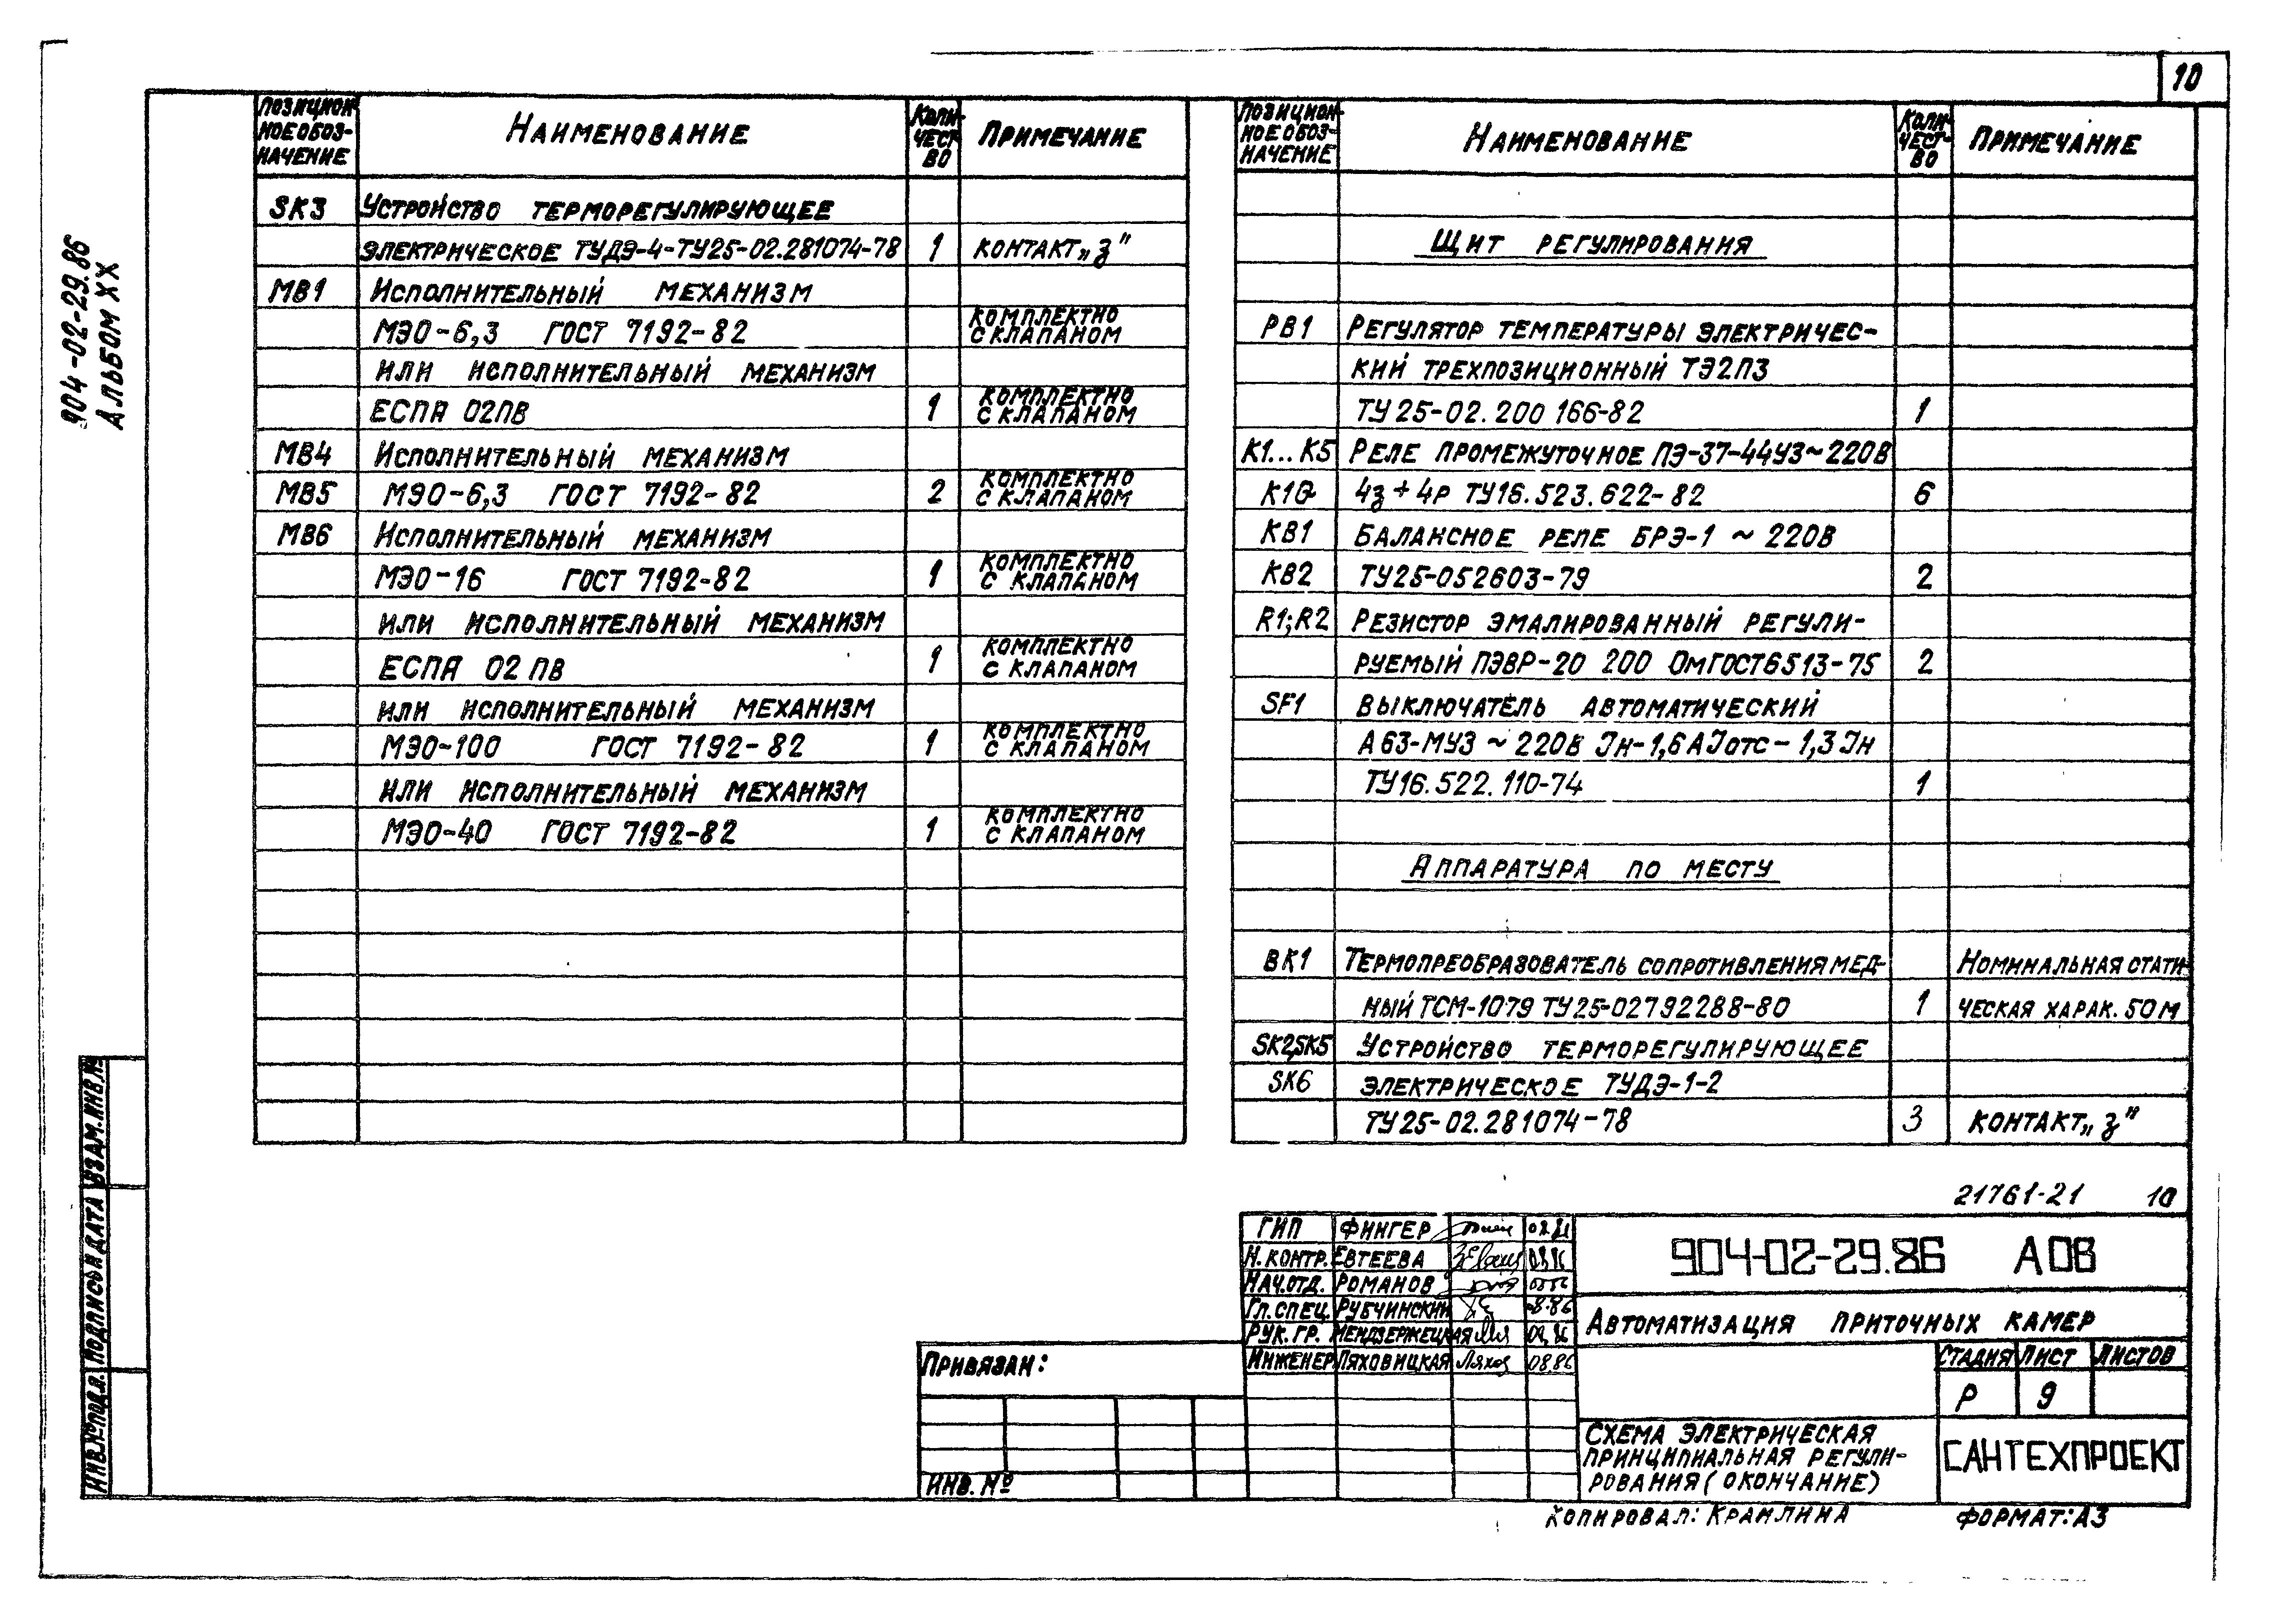 10
904-02-29.86
Альбом XX
Позицион-
ное обоз-
начение
Наименование
Коли-
чест-
во
Примечание
SK3 Устройство терморегулирующее
электрическое ТУДЭ-4-ТУ25-02.281074-78 1 контакт „з"
МВ1 Исполнительный механизм
МЭО-6,3 ГОСТ 7192-82 комплектно
с клапаном
или исполнительный механизм
ЕСПА 02ПВ 1 комплектно
с клапаном
МВ4 Исполнительный механизм
МВ5 МЭО-6,3 ГОСТ 7192-82 2 комплектно
с клапаном
МВ6 Исполнительный механизм
МЭО-16 ГОСТ 7192-82 1 комплектно
с клапаном
или исполнительный механизм
ЕСПА 02 ПВ 1 комплектно
с клапаном
или исполнительный механизм
МЭО-100 ГОСТ 7192-82 1 комплектно
с клапаном
или исполнительный механизм
МЭО-40 ГОСТ 7192-82 1 комплектно
с клапаном
Позицион-
ное обоз-
начение
Наименование
Коли-
чест-
во
Примечание
Щит регулирования
РВ1 Регулятор температуры электричес-
кий трехпозиционный ТЭ2П3
ТУ 25-02.200 166-82 1
К1...К5 Реле промежуточное ПЭ-37-44У3~220В
К10 4з + 4р ТУ16.523.622-82 6
КВ1 Балансное реле БРЭ-1 ~ 220В
КВ2 ТУ25-052603-79 2
R1;R2 Резистор эмалированный регули-
руемый ПЭВР-20 200 Ом ГОСТ6513-75 2
SF1 Выключатель автоматический
А63-МУ3 ~ 220В Iн-1,6А Iотс-1,3 Iн
ТУ16.522.110-74 1
Аппаратура по месту
ВК1 Термопреобразователь сопротивления мед- Номинальная стати-
ный ТСМ-1079 ТУ25-02792288-80 1 ческая харак. 50М
SK2,SK5 Устройство терморегулирующее
SK6 электрическое ТУДЭ-1-2
ТУ25-02.281074-78 3 контакт „з"
21761-21 10
ГИП Фингер
Н.контр. Евтеева
Нач.отд. Романов
Гл.спец. Рубчинский 08.86
Рук.гр. Мендзержецкая
Инженер Ляховицкая Ляхов 08.86
904-02-29.86 АОВ
Автоматизация приточных камер
Стадия Лист Листов
Р 9
Схема электрическая
принципиальная регули-
рования (окончание)
САНТЕХПРОЕКТ
Привязан:
Инв. №
Инв.№подл. Подпись и дата Взам.инв.№
Копировал: Крамлина Формат: А3